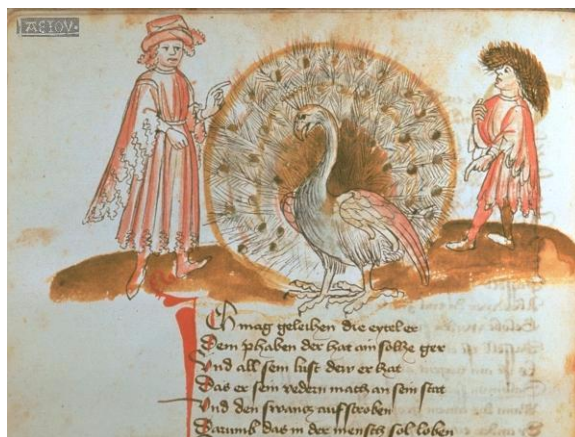 AEIOV
Ich mag geleihen die eytel er
Dem phaben der hat ain sollhe ger
Vnd all sein lust dew er hat
Das er sein vedern mach an sein stat
Vnd den swantz aufstroben
Darumb das in der mensch sol loben